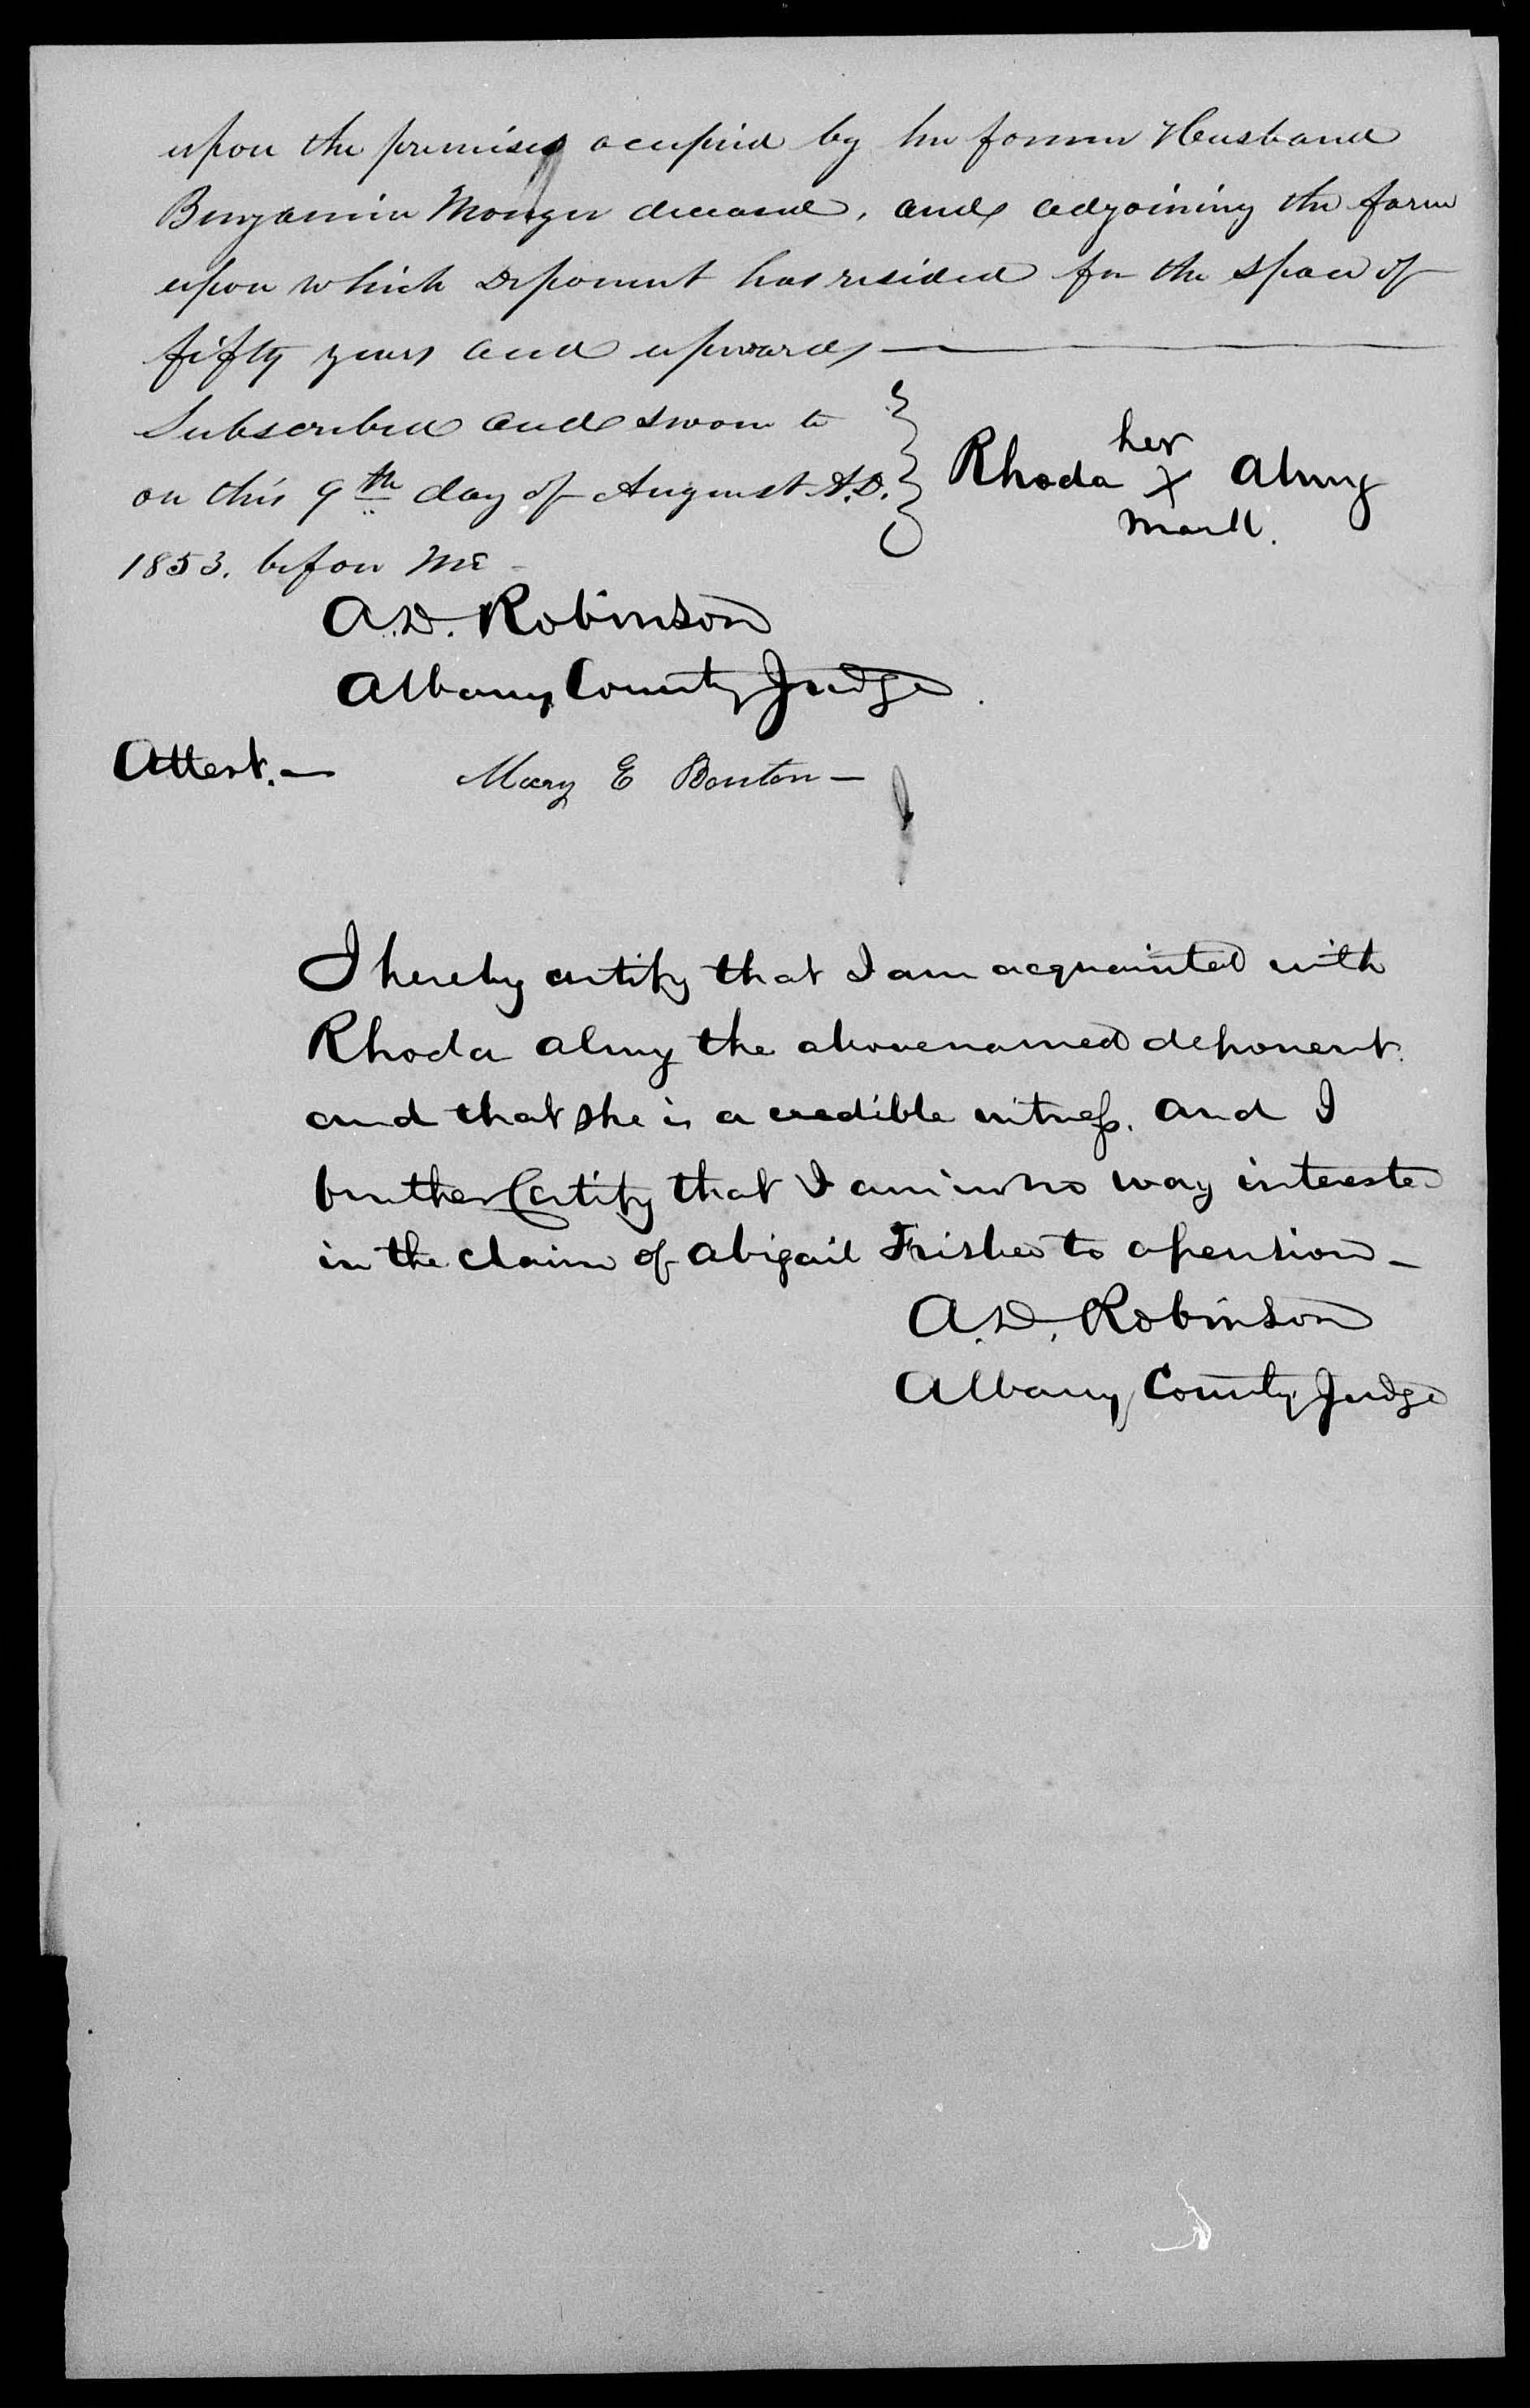 upon the premises occupied by her former Husband
Benjamin Monger deceased, and adjoining the farm
upon which Deponent has resided for the space of
fifty years and upwards
Subscribed and sworn to
on this 9th day of August A.D.
1853. before me
her
Rhoda X Almy
mark.
A.D. Robinson
Albany County Judge.
Attest.— Mary E Benton—
I hereby certify that I am acquainted with
Rhoda Almy the abovenamed deponent.
and that she is a credible witness. and I
further Certify that I am in no way interested
in the claim of Abigail Frisbee to a pension—
A.D. Robinson
Albany County Judge